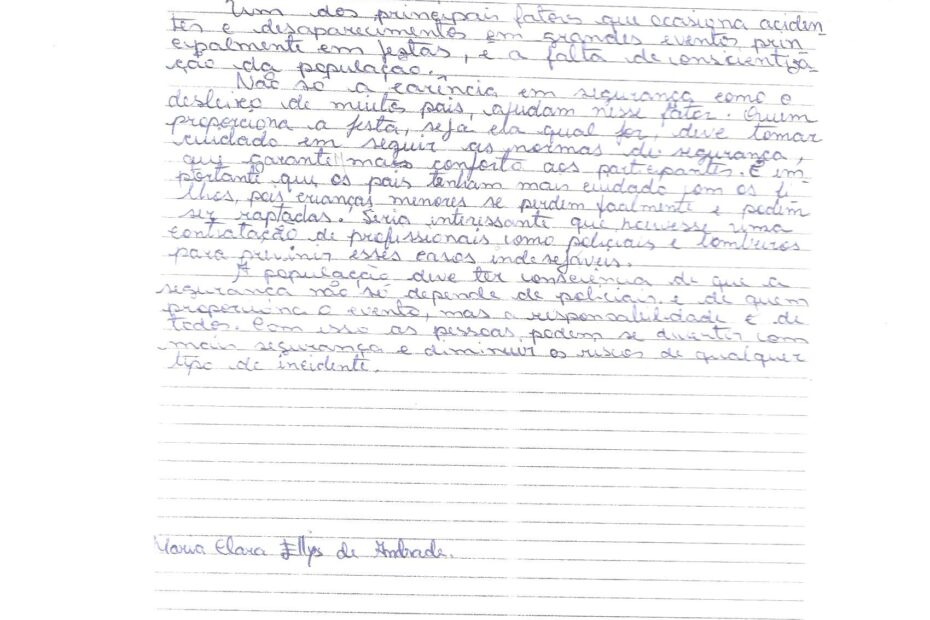 Um dos principais fatores que ocasiona aciden
tes e desaparecimentos em grandes eventos prin
cipalmente em festas, é a falta de conscientiza
ção da população.
Não só a carência em segurança como o
desleixo de muitos pais, ajudam nesse fator. Quem
proporciona a festa, seja ela qual for, deve tomar
cuidado em seguir as normas de segurança,
que garante mais conforto aos participantes. É im-
portante que os pais tenham mais cuidado com os fi-
lhos, pois crianças menores se perdem facilmente e podem
ser raptadas. Seria interessante que houvesse uma
contratação de profissionais como policiais e bombeiros
para previnir esses casos indesejáveis.
A população deve ter consciência de que a
segurança não só depende de policiais e de quem
proporciona o evento, mas a responsabilidade é de
todos. Com isso as pessoas podem se divertir com
mais segurança e diminuir os riscos de qualquer
tipo de incidente.
Maria Clara Ellys de Andrade.